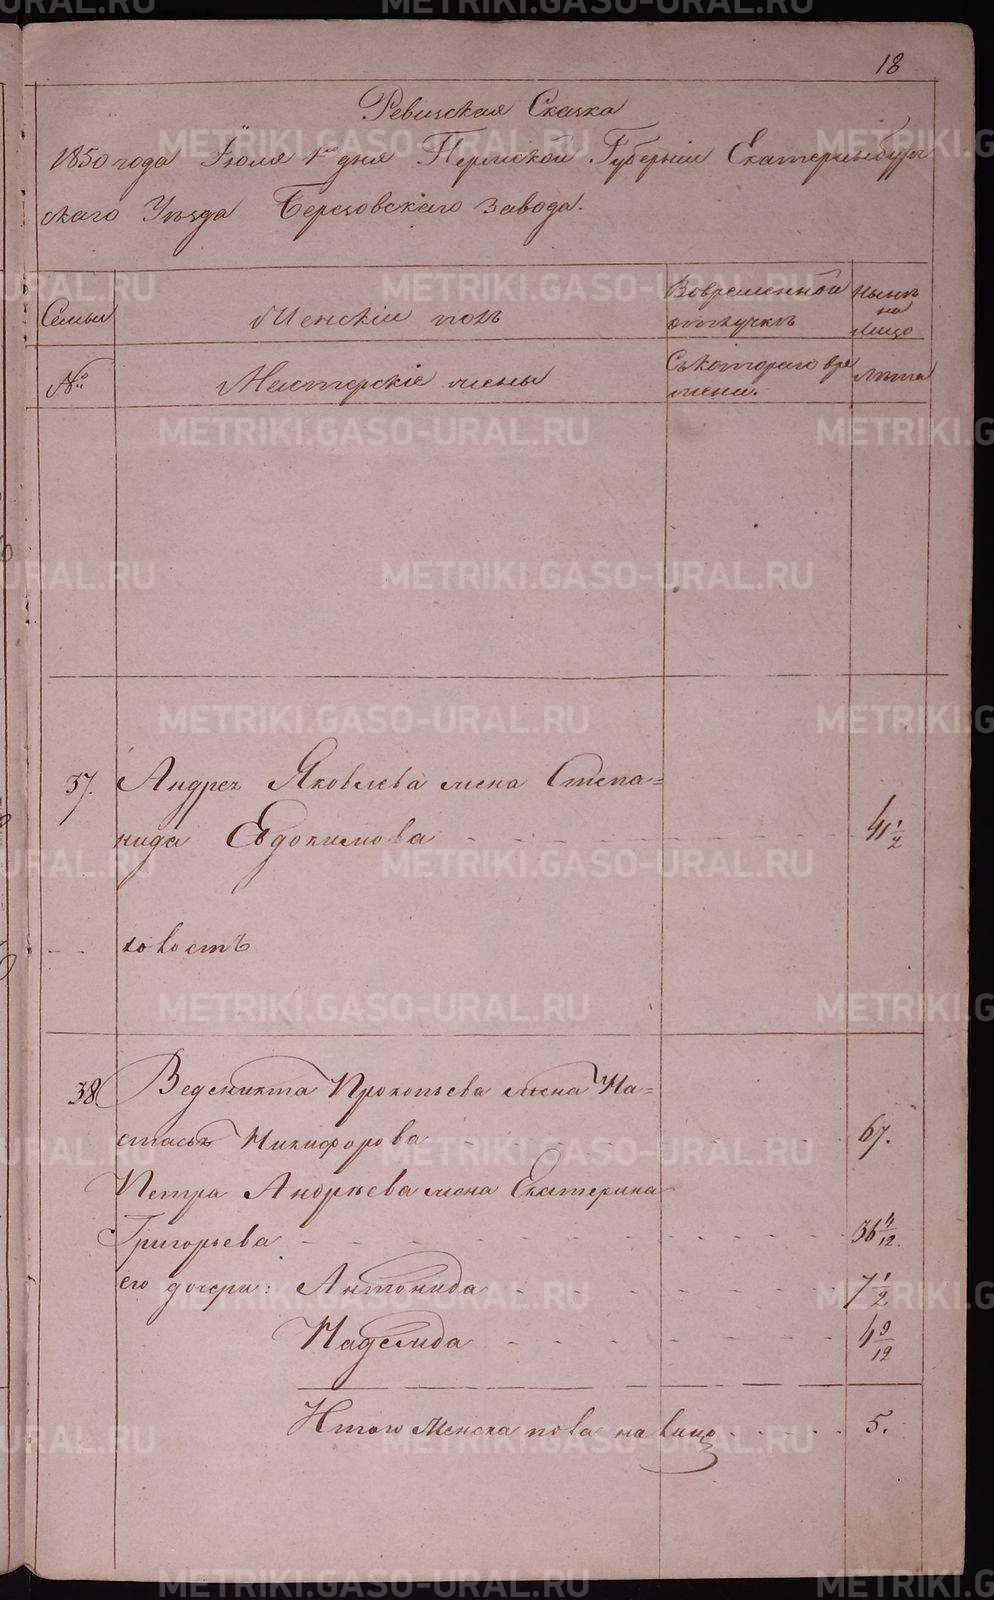 18
Ревизская Сказка
1850 года Іюля 1го дня Пермской Губерніи Екатеринбург
скаго Уѣзда Березовскаго завода.
Семьи
Женскій полъ
Во временной
отлучкѣ
Нынѣ
на
лицо
№
Мастерскіе жены
Съ котораго вре
мени.
Лѣта
37.
Андрея Яковлева жена Степа=
нида Евдокимова
41 1/2
холостъ
38
Веденикта Прокопьева жена На=
стасья Никифорова
67.
Петра Андрѣева жена Екатерина
Григорьева
36 4/12.
его дочери: Антонида
7 1/2
Надежда
4 9/12
Итого женска пола на лицо
5.
METRIKI.GASO-URAL.RU